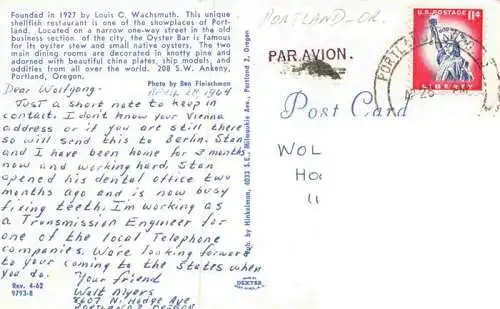 Founded in 1927 by Louis C. Wachsmuth. This unique
shellfish restaurant is one of the showplaces of Port-
land. Located on a narrow one-way street in the old
business section of the city, the Oyster Bar is famous
for its oyster stew and small native oysters. The two
main dining rooms are decorated in knotty pine and
adorned with beautiful chine plates, ship models, and
oddities from all over the world. 208 S.W. Ankeny,
Portland, Oregon.
Photo by Ben Fleischman
1964
Dear Wolfgang:
Just a short note to keep in
contact. I don't know your Vienna
address or if you are still there
so will send this to Berlin. Stan
and I have been home for 3 months
now and working hard. Stan
opened his dental office two
months ago and is now busy
fixing teeth. I'm working as
a Transmission Engineer for
one of the local Telephone
companies. We're looking forward
to your coming to the States when
you do. Your friend
Walt Myers
N. Hodge Ave
Portland 3, Oregon
Rev. 4-62
9793-B
Pub. by Hinkelman, 4033 S.E. Milwaukie Ave., Portland 2, Oregon
DEXTER
PORTLAND-OR.
PAR AVION.
Post Card
U.S. POSTAGE 11¢
LIBERTY
PORTL
PM
WOL
HO